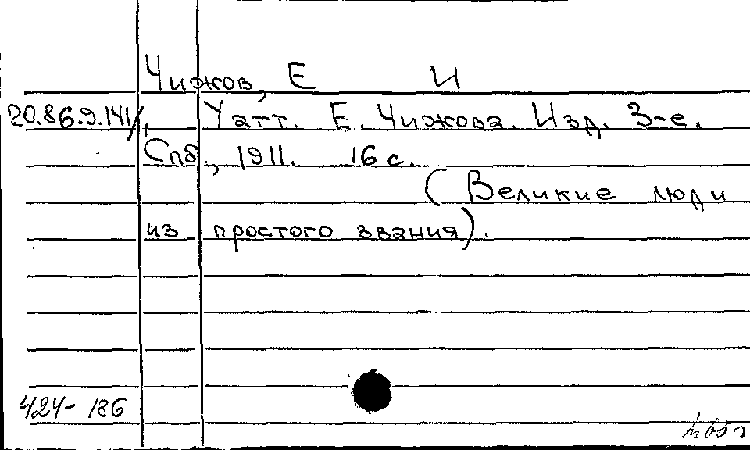 Чижов, Е И
20.86.9.141/, Уатт. Е. Чижова. Изд. 3-е.
Спб, 1911. 16 с.
(Великие люди
из простого звания).
424-186